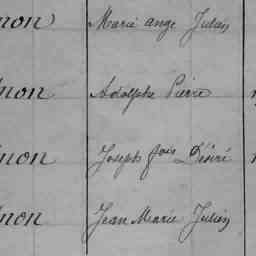 non Marie ange Julien
non Adolphe Pierre
non Joseph fois Désiré
non Jean Marie Julien